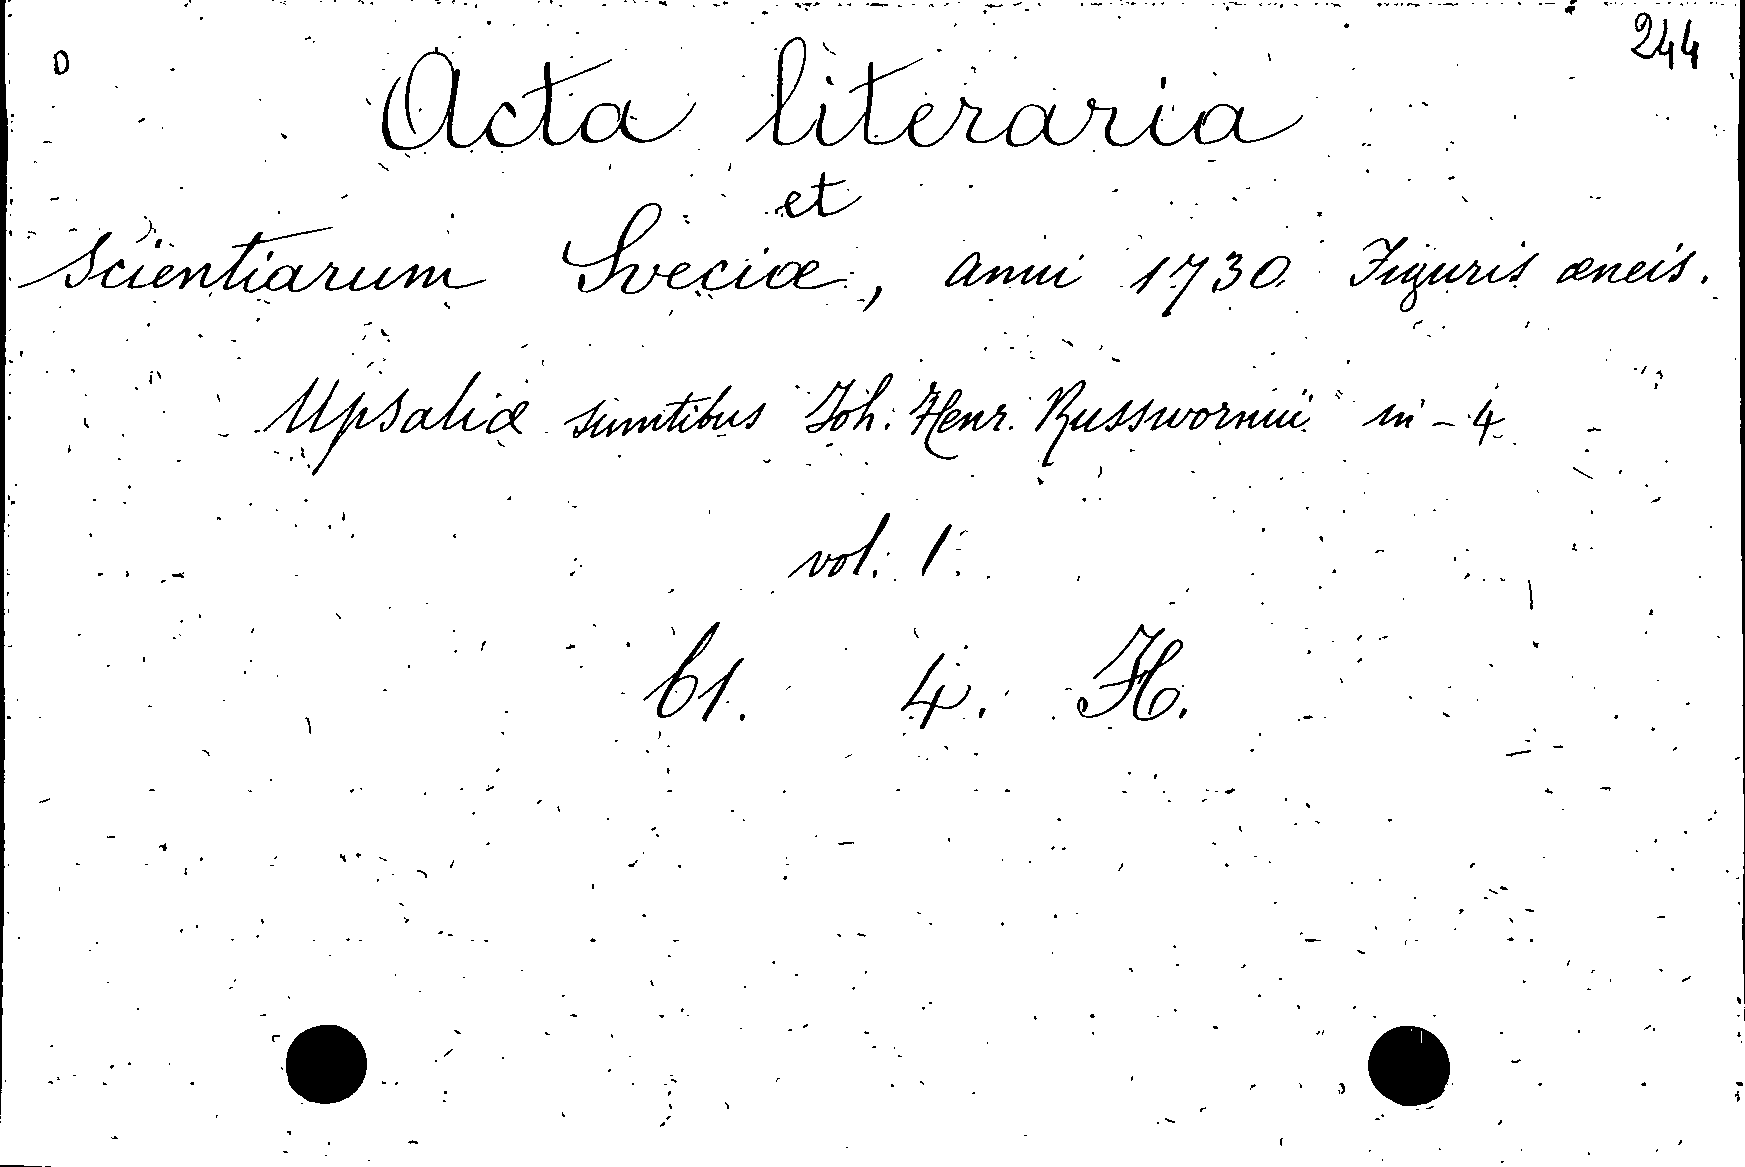 D
244
Acta literaria
et
Scientiarum Sveciæ, anni 1730 Figuris æneis.
Upsaliæ sumtibus Joh. Henr. Russwormii in-4
vol. 1.
61. 4. H.